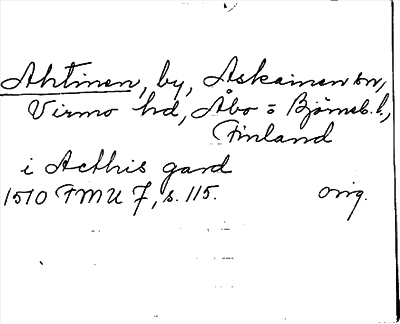 Ahtinen, by, Askainen sn,
Virmo hd, Åbo o Björneb. l.,
Finland
i Acthis gard
1510 FMU 7, s. 115. orig.